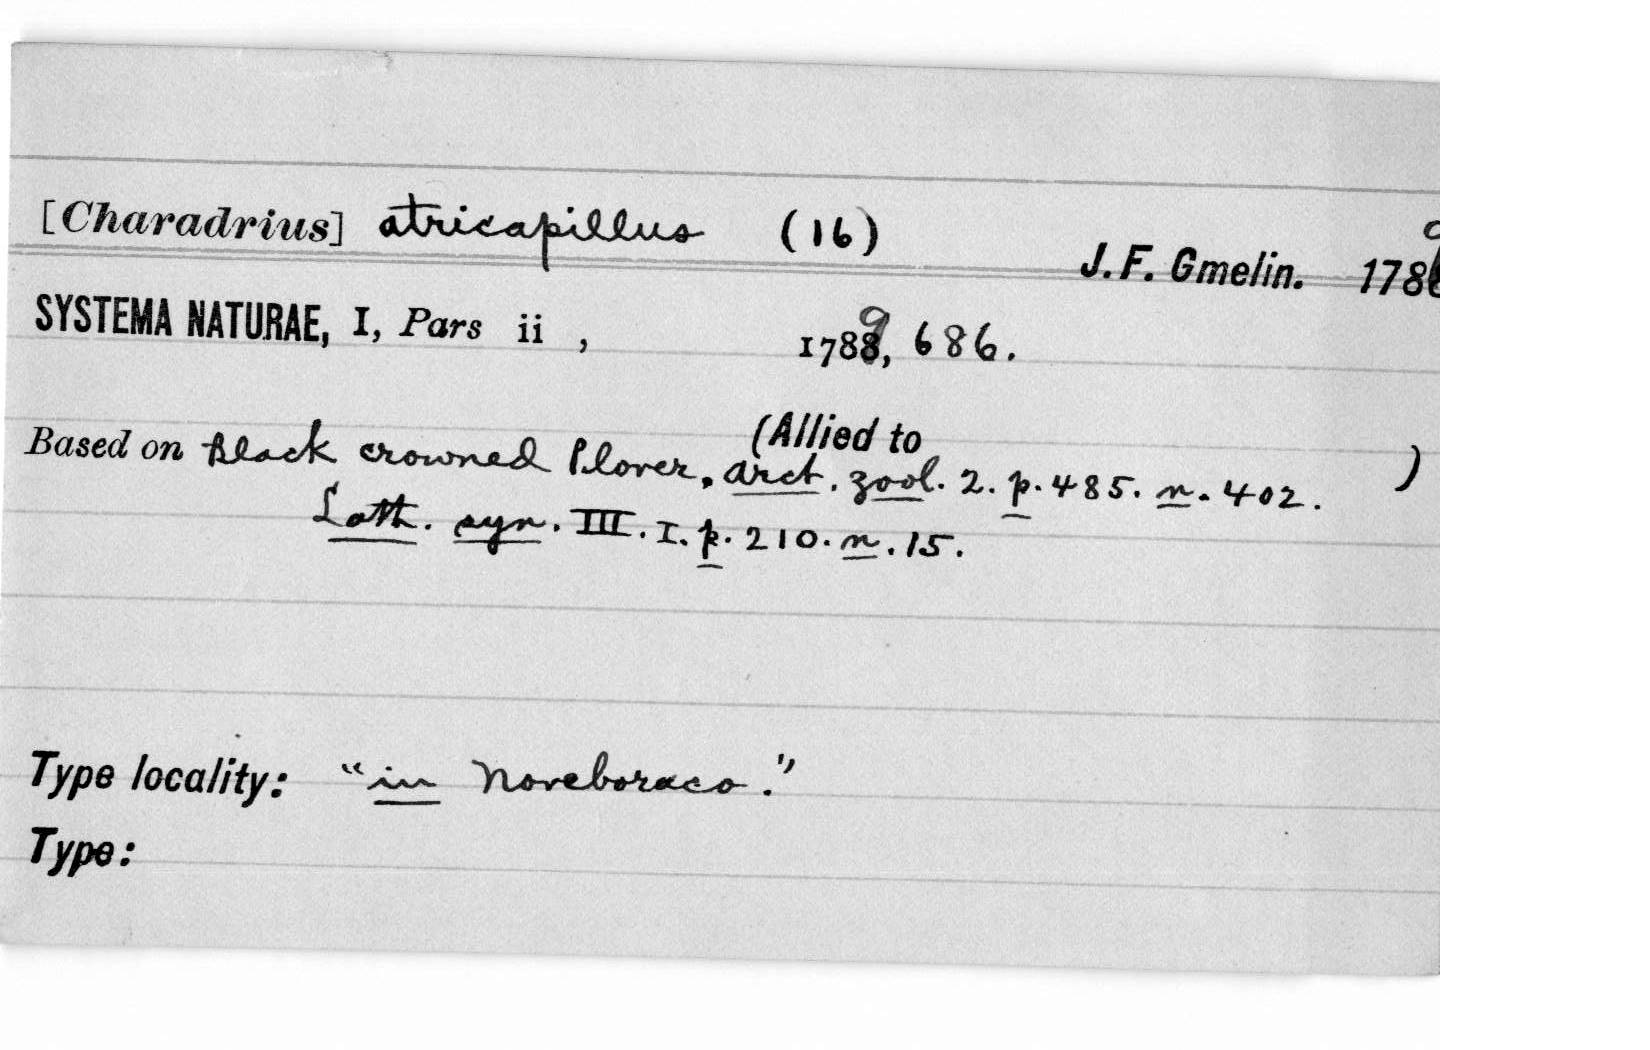 [Charadrius] atricapillus (16)
J. F. Gmelin. 1789
SYSTEMA NATURAE, I, Pars ii , 1789, 686.
(Allied to )
Based on Black crowned Plover, arct. zool. 2. p. 485. n. 402.
Lath. syn. III. I. p. 210. n. 15.
Type locality: "in Noveboraco."
Type: